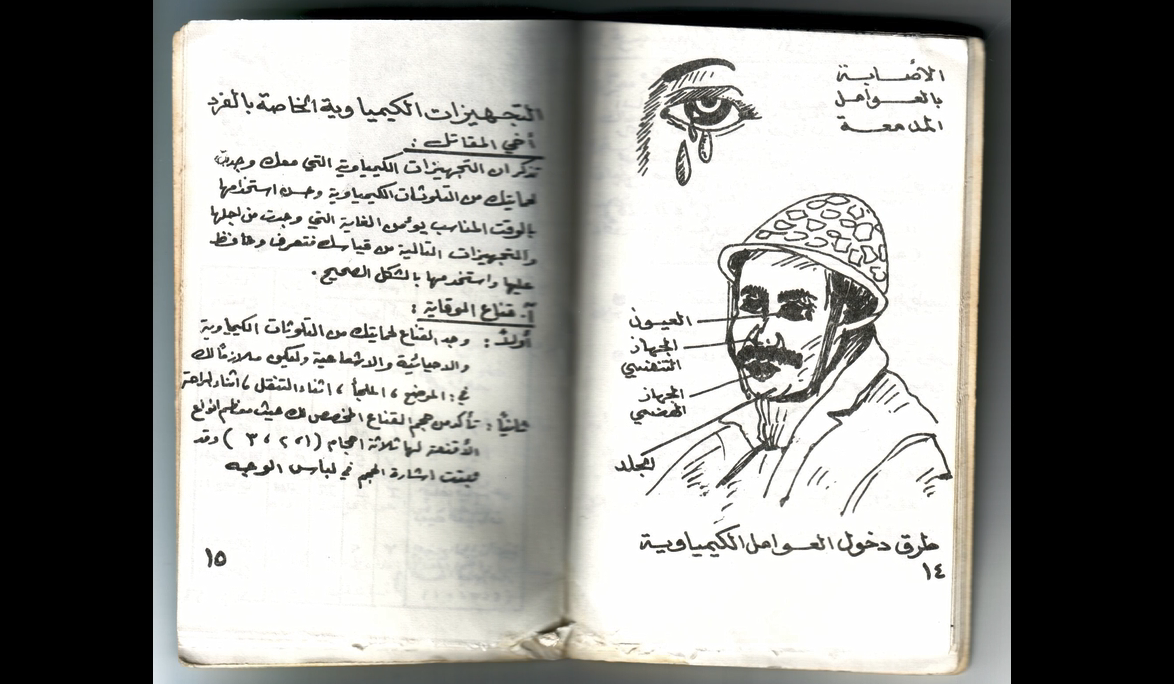 الاصابة
بالعوامل
المدمعة
العيون
الجهاز
التنفسي
الجهاز
الهضمي
الجلد
طرق دخول العوامل الكيمياوية
١٤
التجهيزات الكيمياوية الخاصة بالفرد
أخي المقاتل :
تذكر ان التجهيزات الكيمياوية التي معك وجدت
لحمايتك من التلوثات الكيمياوية وحسن استخدامها
بالوقت المناسب يؤمن الغاية التي وجدت من اجلها
والتجهيزات التالية من قياسك فتعرف وحافظ
عليها واستخدمها بالشكل الصحيح .
آ- قناع الوقاية :
أولاً : وجد القناع لحمايتك من التلوثات الكيماوية
والاحيائية والاشعاعية وليكن ملازماً لك
في : الموضع ، الملجأ ، اثناء التنقل ، اثناء الراحة
ثانياً : تأكد من حجم القناع المخصص لك حيث معظم انواع
الأقنعة لها ثلاثة احجام (١،٢،٣) وقد
ثبتت اشارة الحجم في لباس الوجه
١٥